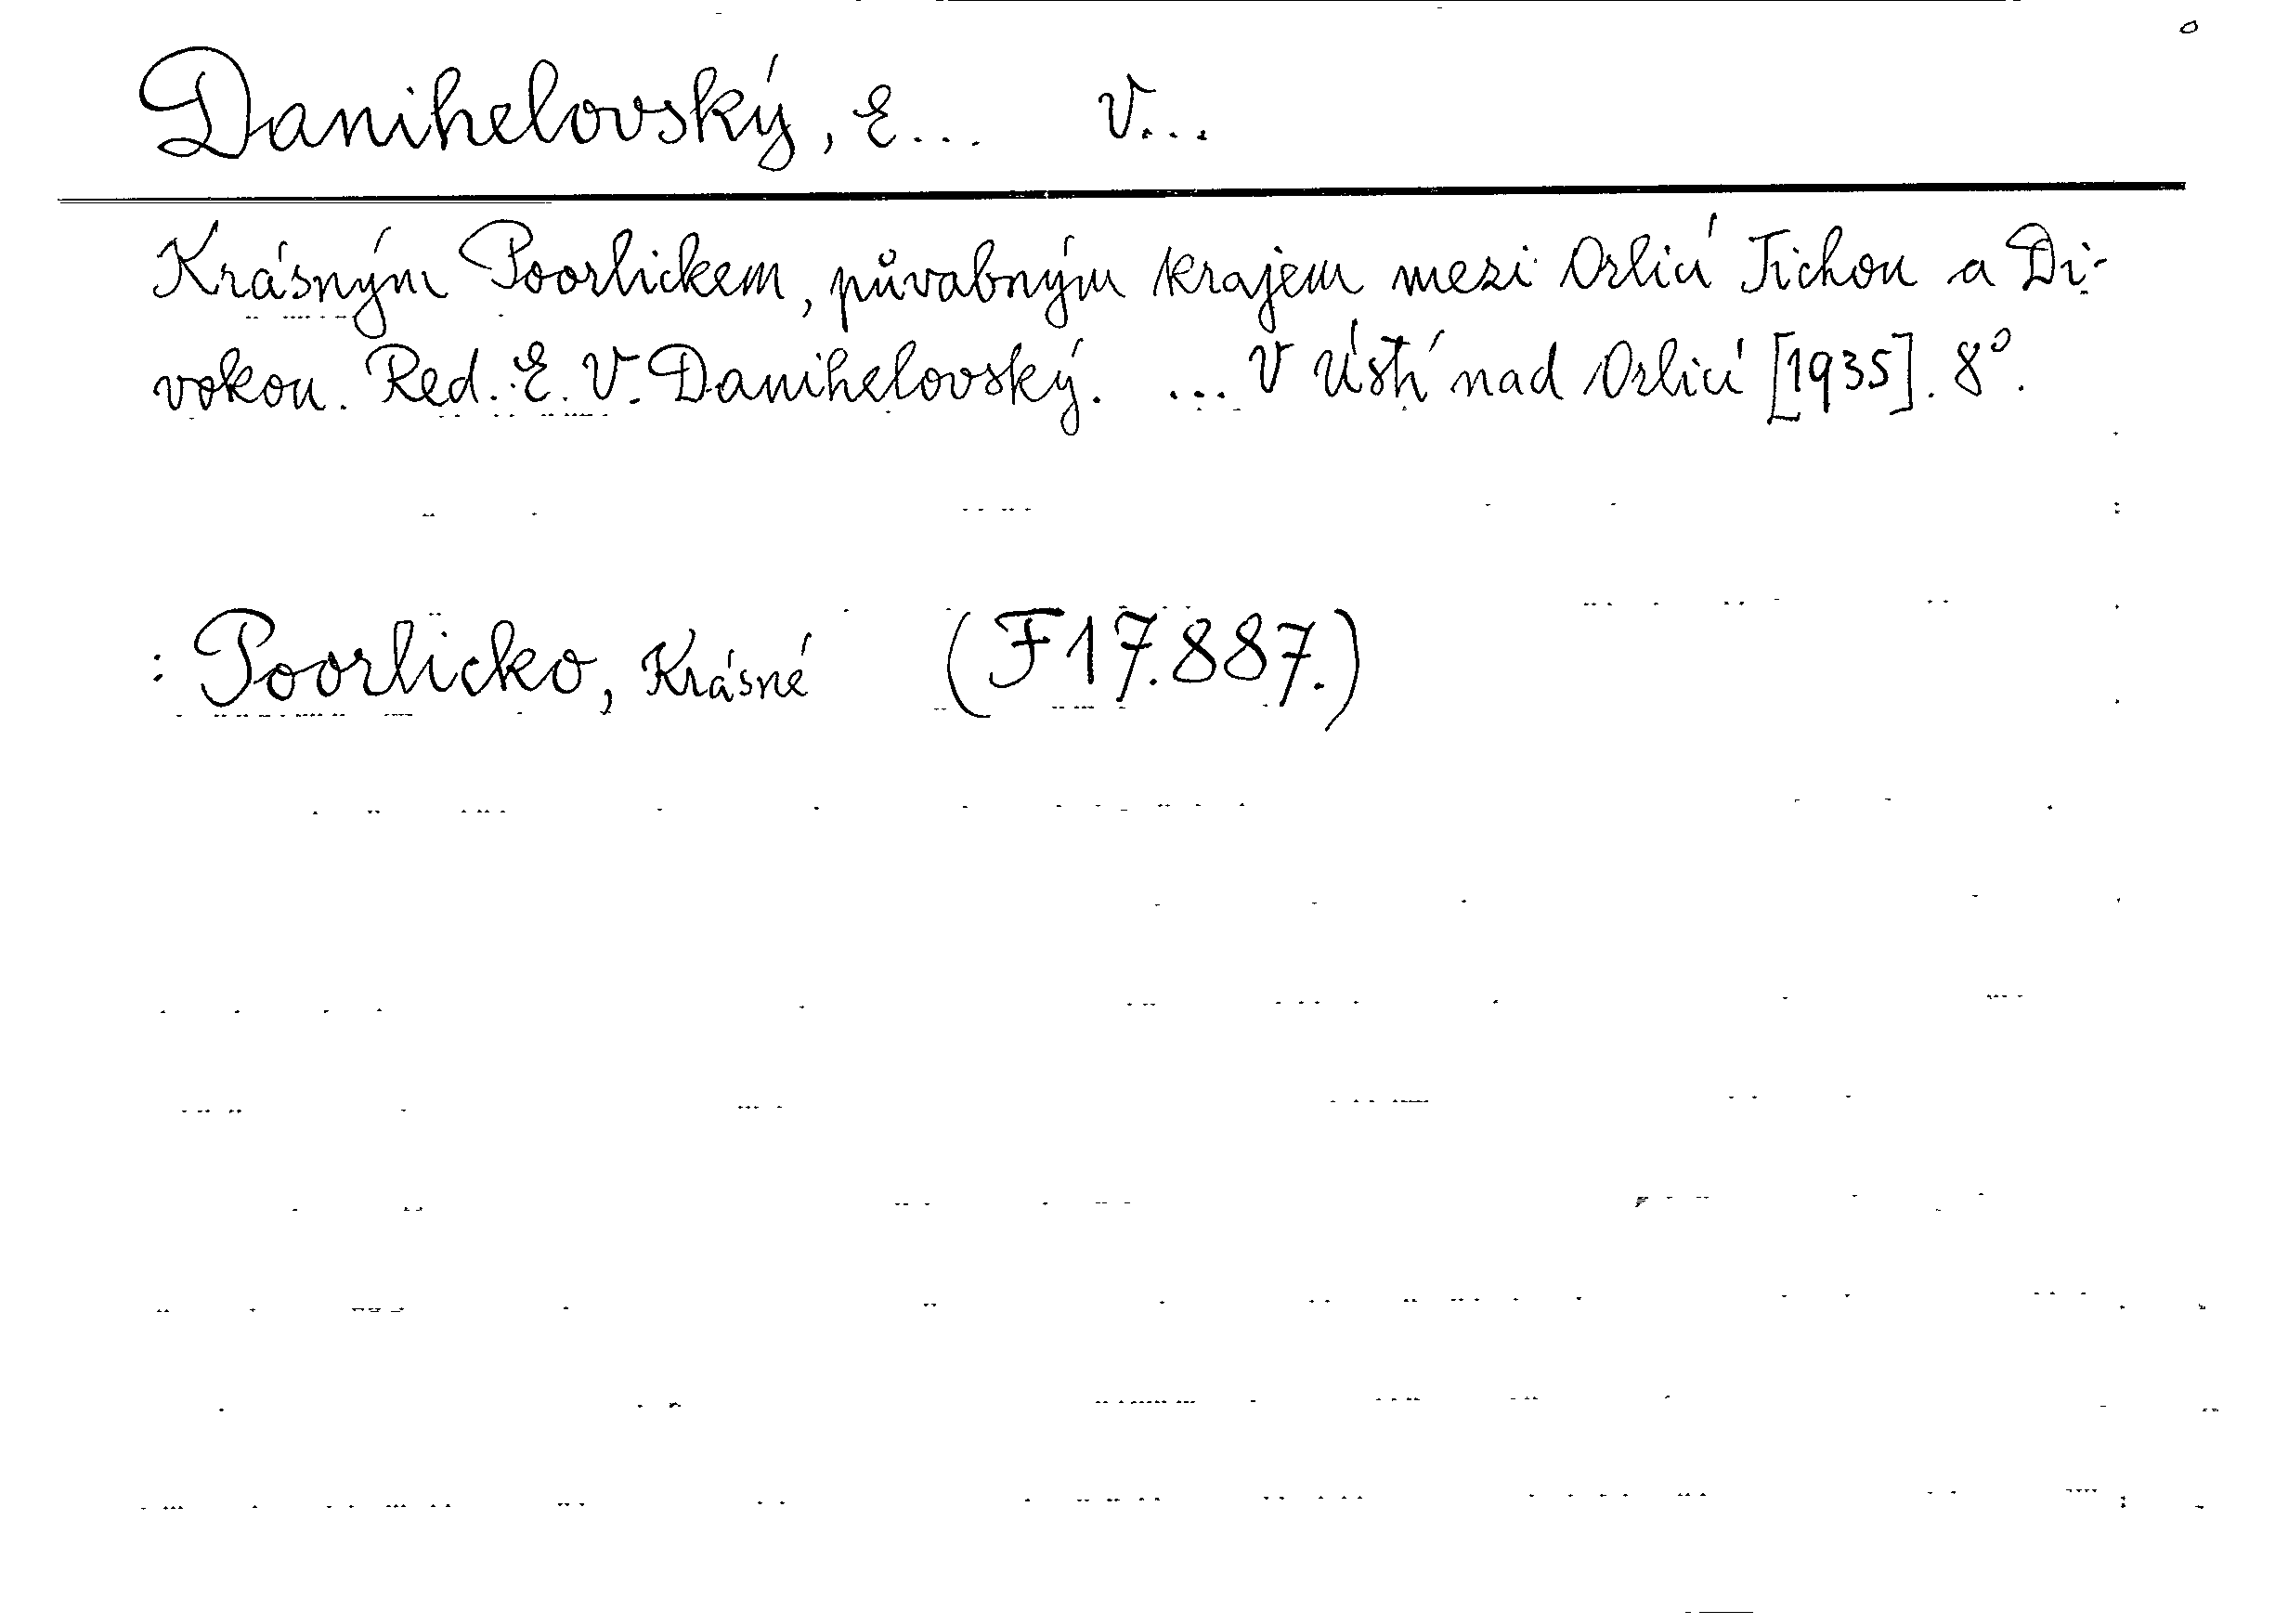 Danihelovský, E... V...
Krásným Poorlickem, půvabným krajem mezi Orlicí Tichou a Di-
vokou. Red. E. V. Danihelovský. ... V Ústí nad Orlicí [1935]. 8°.
: Poorlicko, Krásné (F17.887.)